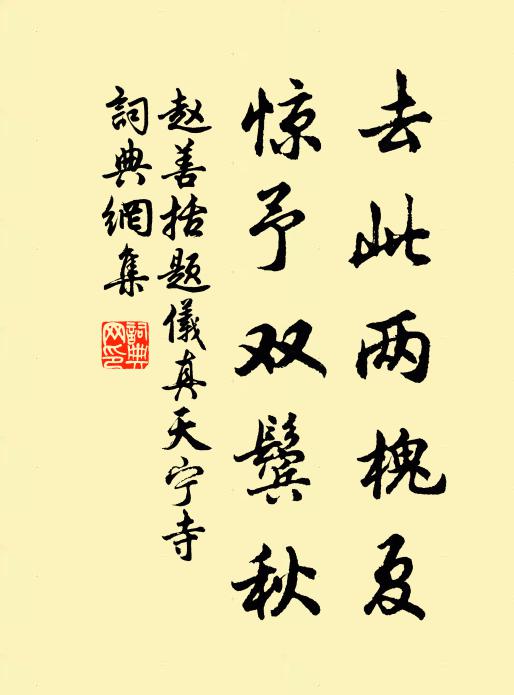 去此两槐夏
惊予双鬓秋
赵善括题儀真天宁寺
詞典網集
詞典网印